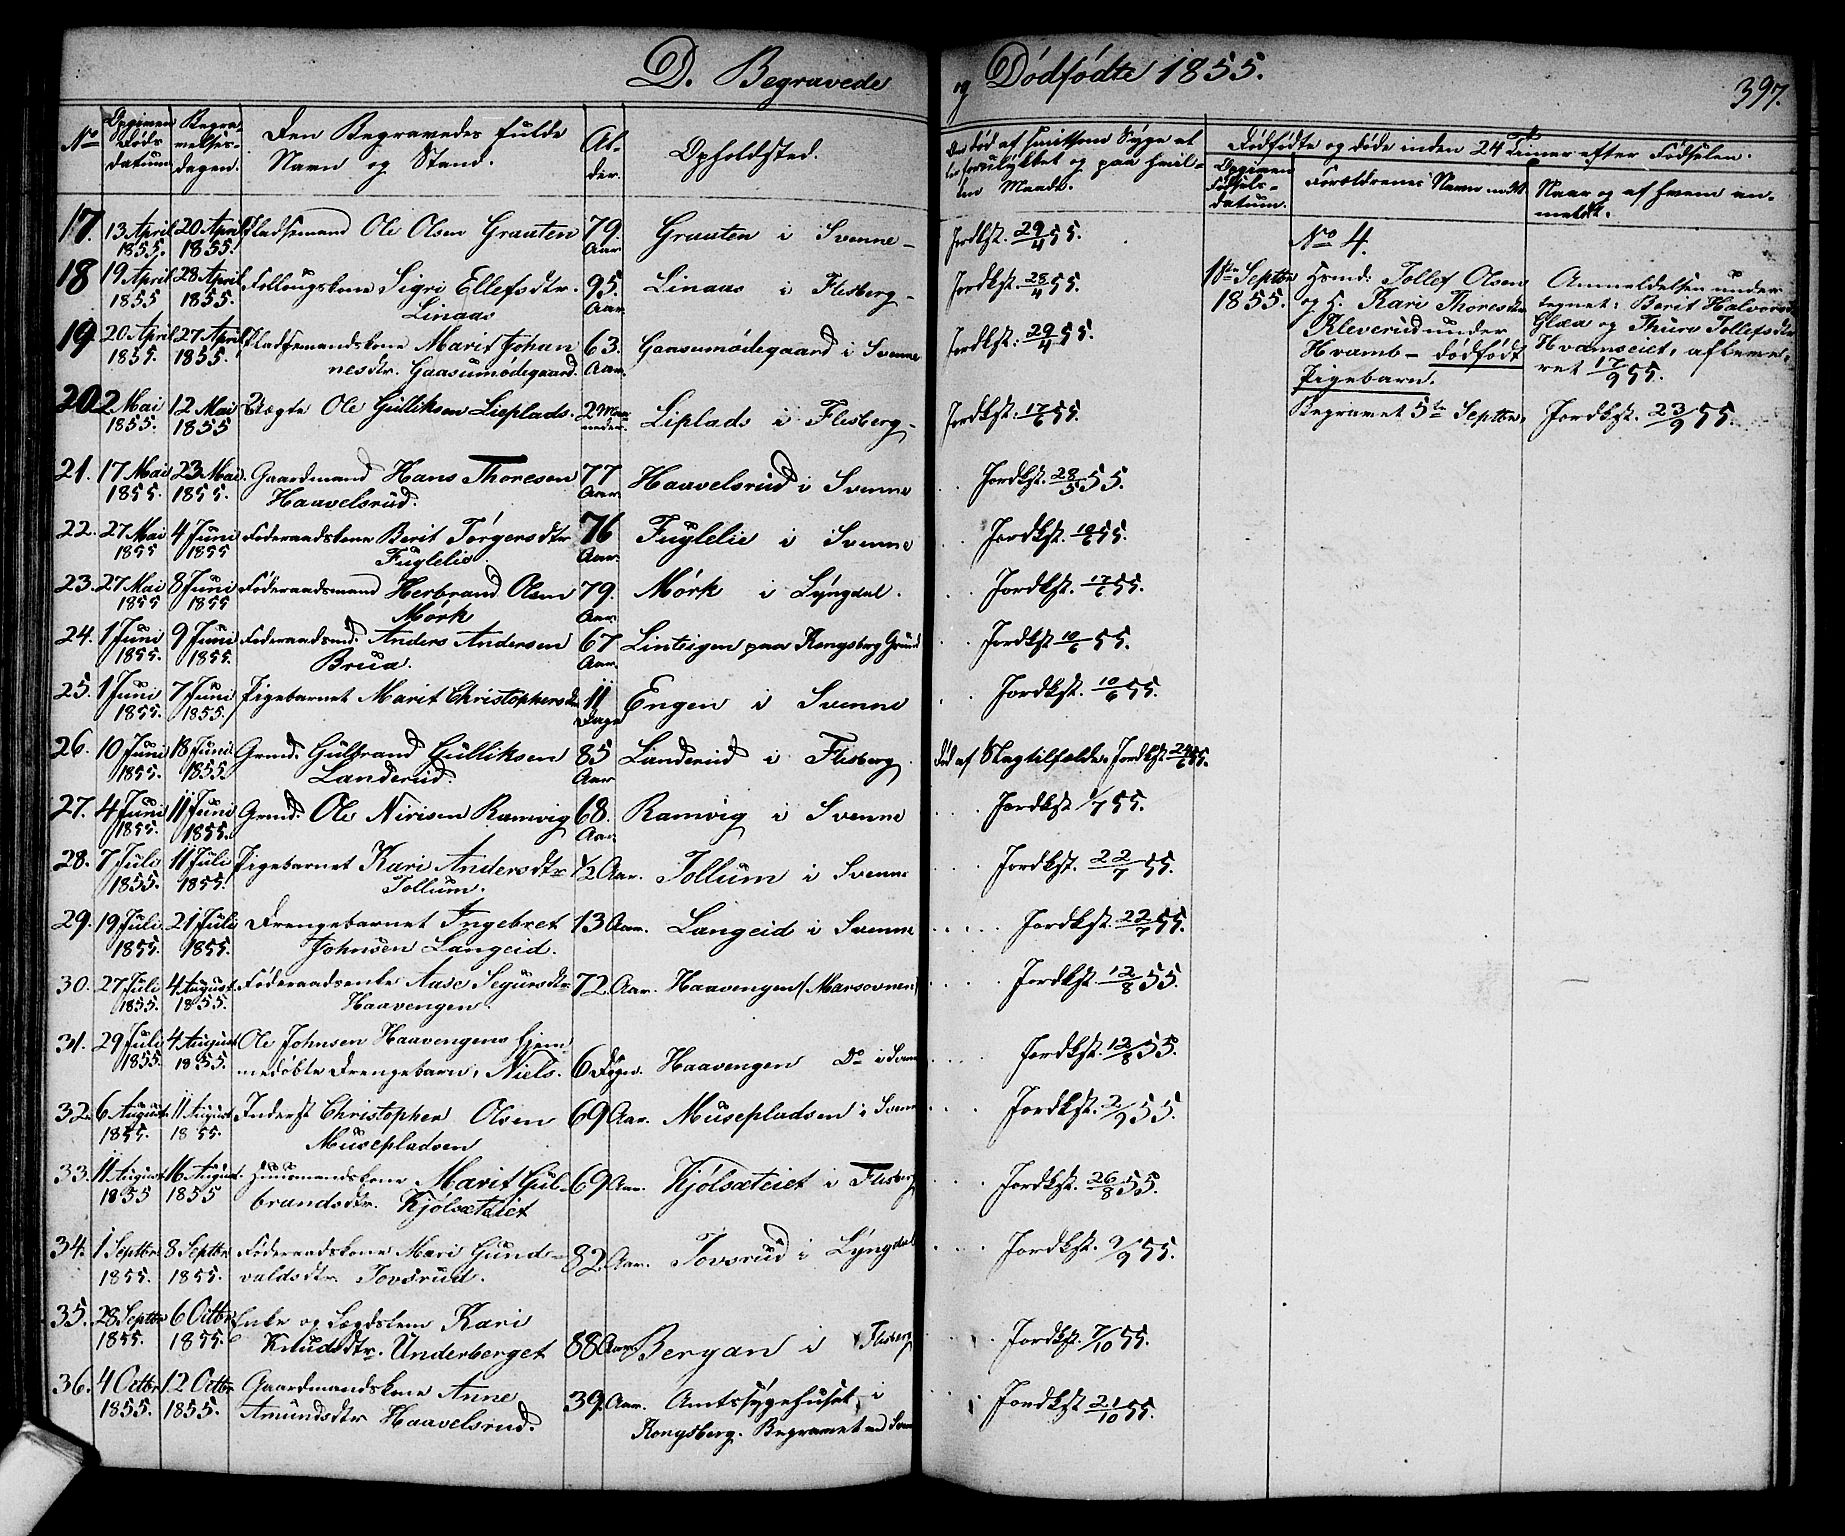 D. Begravede og Dödfödte 1855.
397.
No
Opgiven Döds datum
Begravelsesdagen.
Den Begravedes fulde Navn og Stand.
Alder.
Opholdsted.
Dödfödte og döde inden 24 Timer efter Födselen.
Opgiven Födsels-datum.
Forældrenes Navn
Naar og af hvem anmeldt.
17. 13 April 1855. 20 April 1855. Pladsemand Ole Olsen Grauten 79. Aar Grauten i Svenne - Jordkst. 29/4 55.
18 19 April 1855 28 April 1855. Sigri Ellefsdtr. Linaas 95. Aar Linaas i Flesberg - Jordkst. 28/4 55.
19. 20 April 1855. 27 April 1855. Pladsemandskone Marit Johannesdtr. Gaasumödegaard. 63. Aar. Gaasumödegaard i Svenne Jordkst. 29/4 55.
20. 2 Mai 1855. 12 Mai 1855 Uægte Ole Gulliksen Lieplads. 2 Maaneder. Liplads i Flesberg - Jordkst. 17/6 55.
21. 17 Mai 1855. 23 Mai 1855. Gaardmand Hans Thoresen Haavelsrud. 77 Aar. Haavelsrud i Svenne Jordkst. 28/5 55.
22. 27 Mai 1855 4 Juni 1855 Föderaadskone Berit Törgersdtr Fuglelie. 76 Aar. Fuglelie i Svenne Jordkst. 10/6 55.
23. 27 Mai 1855 8 Juni 1855 Föderaadsmand Herbrand Olsen Mörk 79. Aar. Mörk i Lyngdal. Jordkst. 17/6 55.
24. 1 Juni 1855. 9 Juni 1855. Föderaadsmd. Anders Andersen Brua. 67 Aar. Linteigen paa Kongsberg Grund Jordkst 10/6 55.
25. 1 Juni 1855. 7 Juni 1855. Pigebarnet Marit Christophersdtr 11 Dage Engen i Svenne Jordkst. 10/6 55.
26. 10 Juni 1855. 18 Juni 1855. Grmd. Gulbrand Gulliksen Landerud. 85 Aar Landerud i Flesberg. Död af Slagtilfælde. Jordkst 24/6 55.
27. 4 Juni 1855. 11 Juni 1855. Grmd. Ole Nirisen Ramvig 68. Aar. Ramvig i Svenne Jordkst 1/7 55.
28. 7 Juli 1855. 11 Juli 1855. Pigebarnet Kari Andersdtr Tollum. 1/2 Aar. Tollum i Svenne Jordkst. 22/7 55.
29. 19 Juli 1855. 21 Juli 1855. Drengebarnet Ingebret Johnsen Langeid. 13 Aar. Langeid i Svenne Jordkst. 22/7 55.
30. 27 Juli 1855. 4 August 1855. Föderaadsenke Aase Segursdtr Haavengen. 72 Aar. Haavengen (Marsovnen) Jordkst. 12/8 55.
31. 29 Juli 1855. 4 August 1855. Ole Johnsen Haavengens hjemmedöbte Drengebarn, Niels. 6 Dage. Haavengen Do i Svenne Jordkst. 12/8 55.
32. 6 August 1855. 11 August 1855. Inderst Christopher Olsen Musepladsen 69 Aar. Musepladsen i Svenne Jordkst. 2/9 55.
33. 11 August 1855 16 August. 1855 Huusmandskone Marit Gulbrandsdtr. Kjölsæteiet 69 Aar. Kjölsæteiet i Flesberg Jordkst. 26/8 55.
34. 1 Septbr 1855. 8 Septbr 1855. Föderaadskone Mari Gundvaldsdtr. Tovsrud. 82 Aar. Tovsrud i Lyngdal Jordkst. 9/9 55.
35. 28 Septbr 1855. 6 Octbr 1855. Enke og Lægdslem Kari Knudsdtr. Underberget 88 Aar. Bergan i Flesberg Jordkst. 7/10 55.
36. 4 Octbr 1855. 12 Octbr 1855. Gaardmandskone Anne Amundsdtr Haavelsrud. 39 Aar. Amtssygehuset i Kongsberg. Begravet ved Svenne Jordkst 21/10 55.
No 4.
1ste Septbr 1855.
Husmd. Tollef Olsen
og H. Kari Thoresdtr
Kleverud under
Hvamb - dödfödt
Pigebarn.
Begravet 5te Septbr.
Anmeldelsen undertegnet: Berit Halvorsdtr
Glæa og Thuro Tollefsdtr
Hvamseiet, afleveret 17/9 55.
Jordkst. 23/9 55.